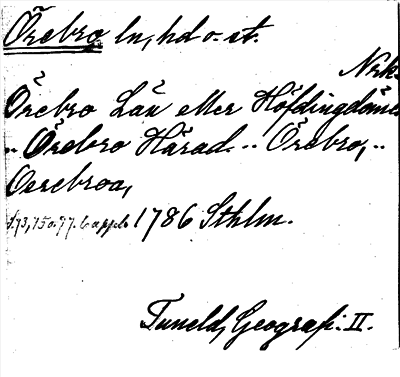 Örebro ln, hd o. st.
Nrk.
Örebro Län eller Höfdingdöme
.. Örebro Härad .. Örebro, ..
Oerebroa,
s. 73, 75 o. 77. 6 uppl. 1786 Sthlm.
Tuneld, Geografi. II.